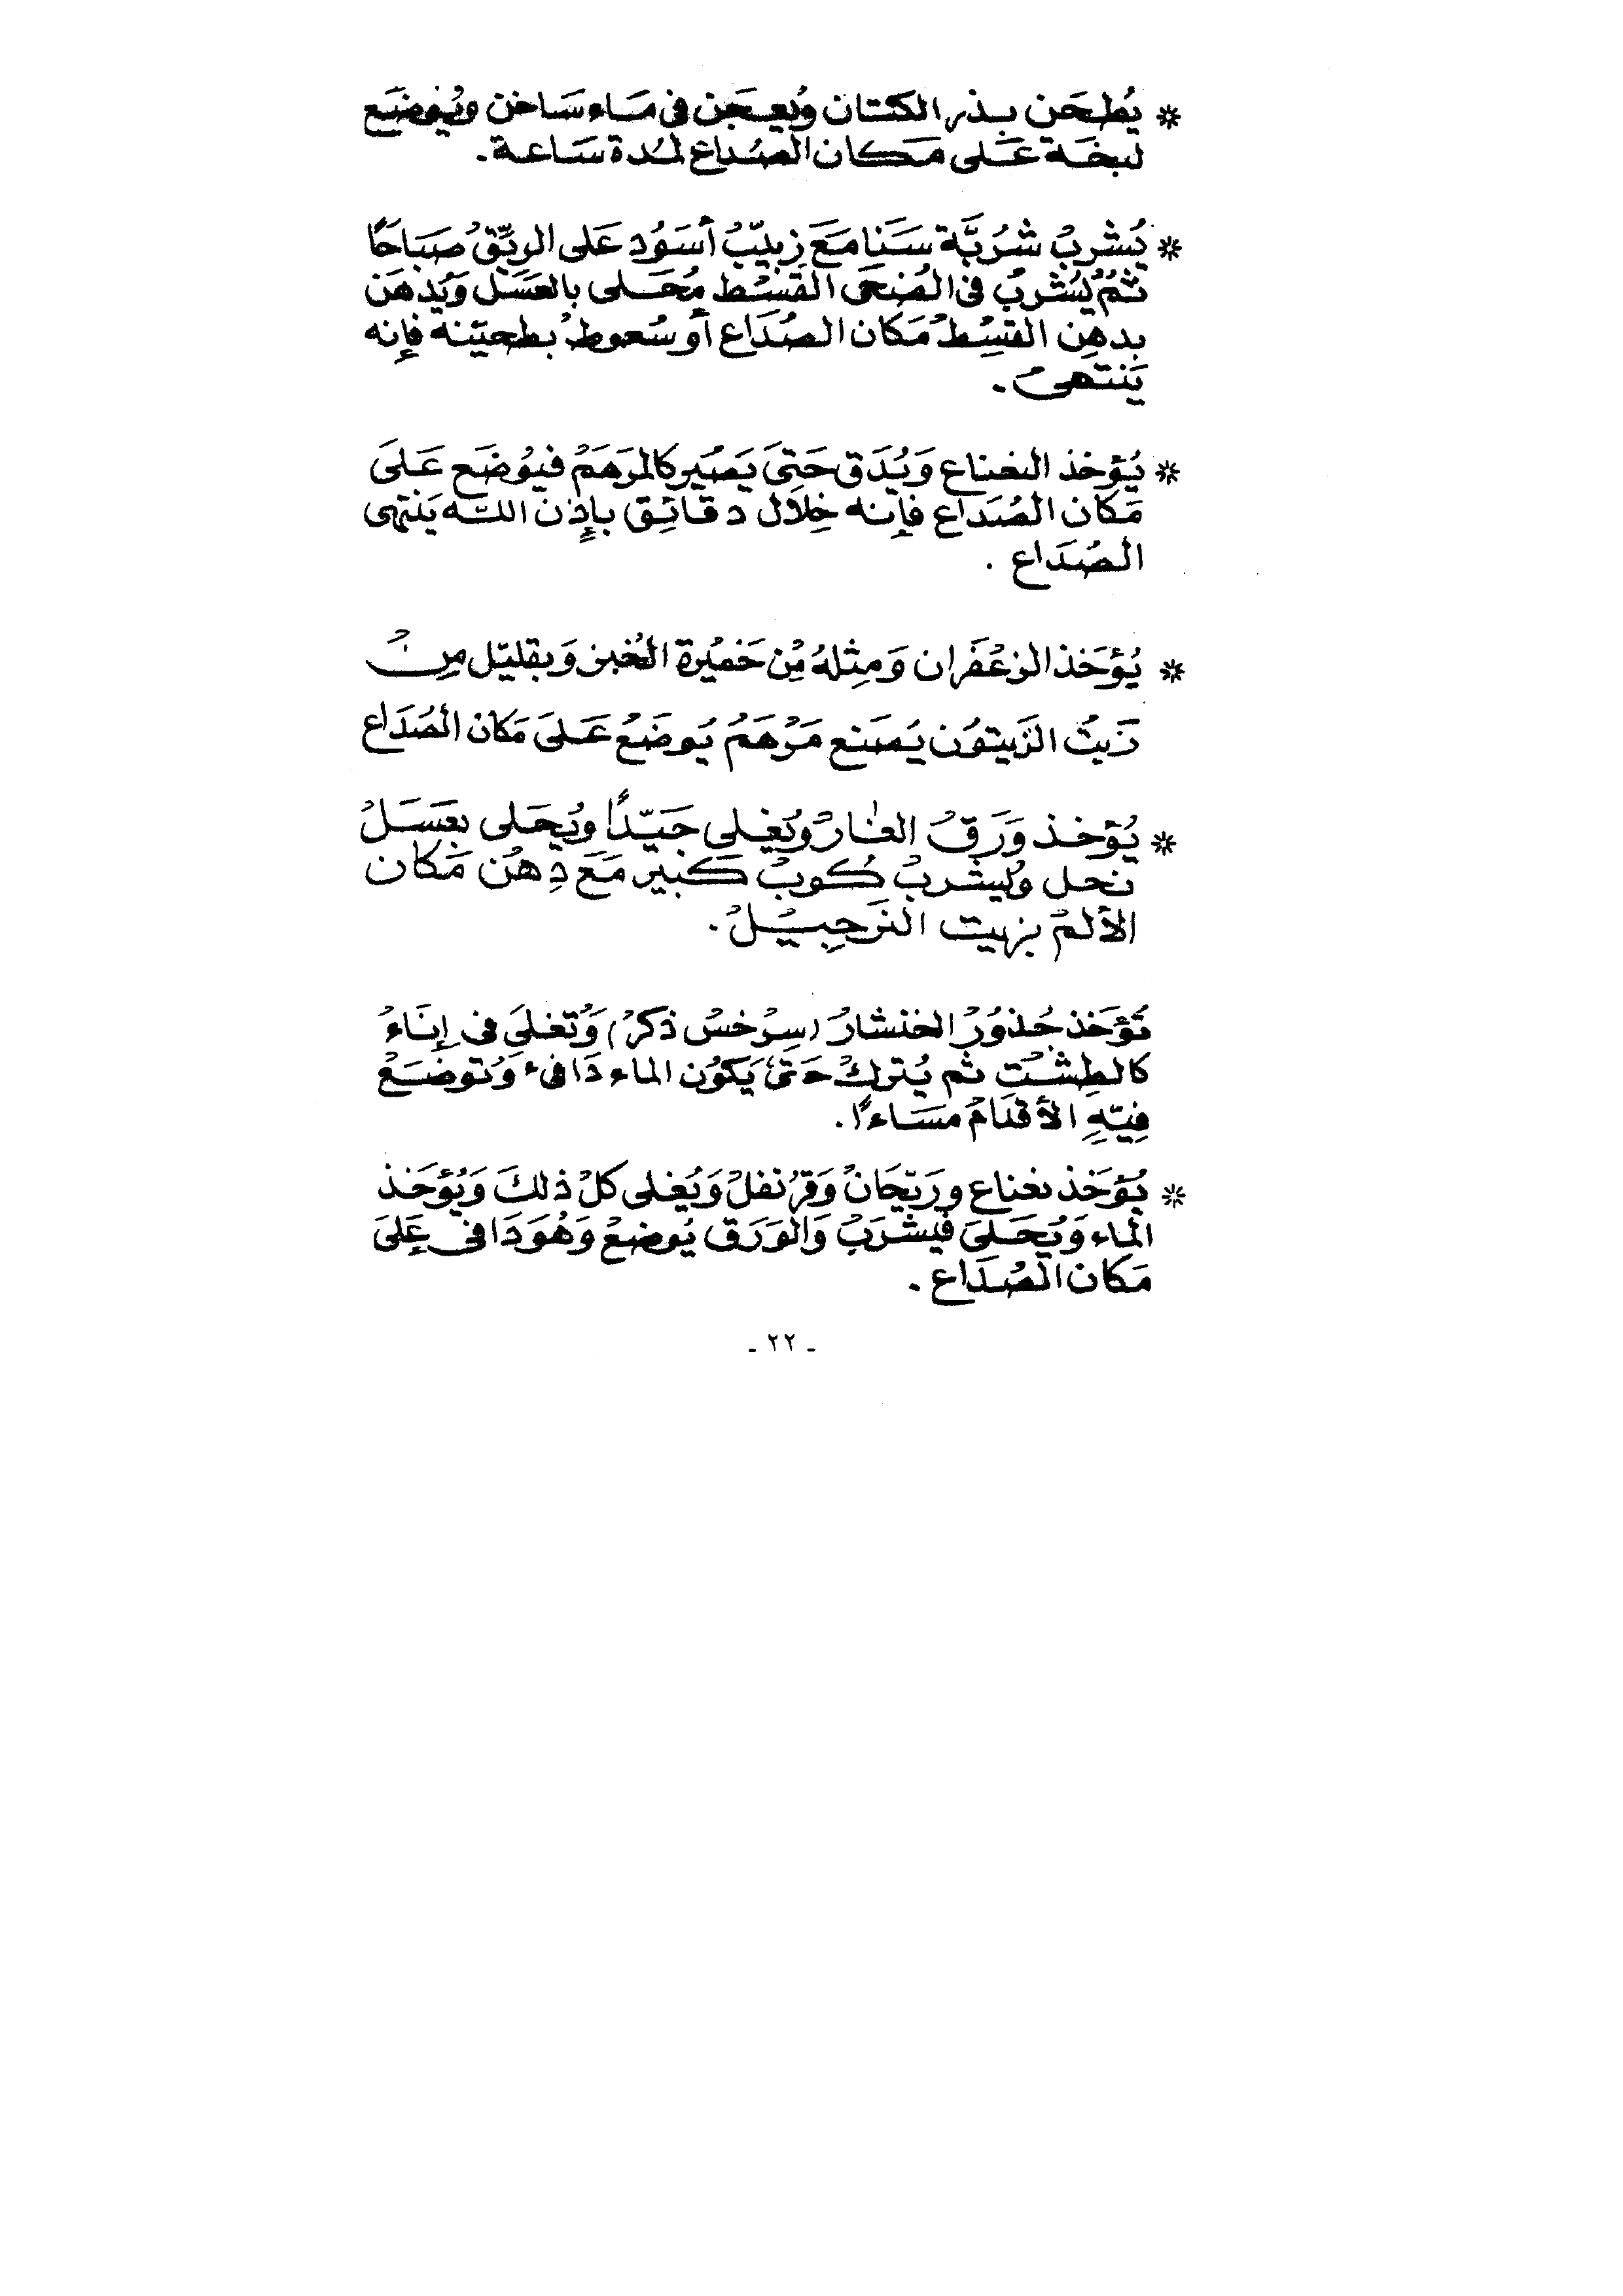 * يُطحَن بـذر الكتـان ويُعـجَن في مَـاء سَـاخن ويُـوضَـع
لبخَـة عَـلى مَـكان الصُـداع لمُـدة سَـاعـة.
* يُشربُ شُربَّة سَـنا مَعَ زبيبُ أسَوُد عَلى الريِّقُ صَبَاحًا
ثُمُ يُشربُ في الضُحَى القسُط مُحَـلى بالعَسَل وَيُدهَن
بدهِن القسُط مَكان الصُدَاع أو سُعوط بطحيّنه فإنه
يَنتهىُ.
* يُؤخذ النعناع وَيُدَق حَتىَ يَصَير كالمرَهَمُ فيُوضَع عَـلىَ
مَكان الصُدَاع فإنه خِلاَل دقائِق بإذن اللـه يَنتهى
الصُدَاع .
* يُؤخَذ الزعُفَران وَمِثلهُ مِن خَميُرة الخُبز وَبقليّل مِنُ
زَيتُ الزَيتوُن يَصَنع مَرُهَمُ يُوضَعُ عَـلىَ مَكان الصُدَاع
* يُؤخـذ وَرَقُ الغـارُ ويُغـلى جَيـّدًا ويُحَـلى بعَسَـلُ
نحـل ويُشربُ كُوبُ كَـبير مَعَ دِهُن مَكان
الألمُ بزيت النَرجِيـُلُ.
تُؤخَذ جُذوُرُ الخنشارُ (سِرُخسُ ذكرُ) وَتُغـلىَ في إنَاءُ
كالطِشُـت ثم يُتركُ حَتىَ يَكوُن الماء دَافىء وَتُوضَـعُ
فِيّهِ الأقدَامُ مسَـاءً.
* يُؤخَذ نعناع وريّحَانُ وَقرُنفلُ وَيُغلى كلُ ذلكَ وَيُؤخَـذ
الماء وَيُحَـلىَ فيُشرَبُ وَالوَرَق يُوضعُ وَهُوَ دَافي عَلىَ
مَكان الصُدَاع .
- ٢٢ -